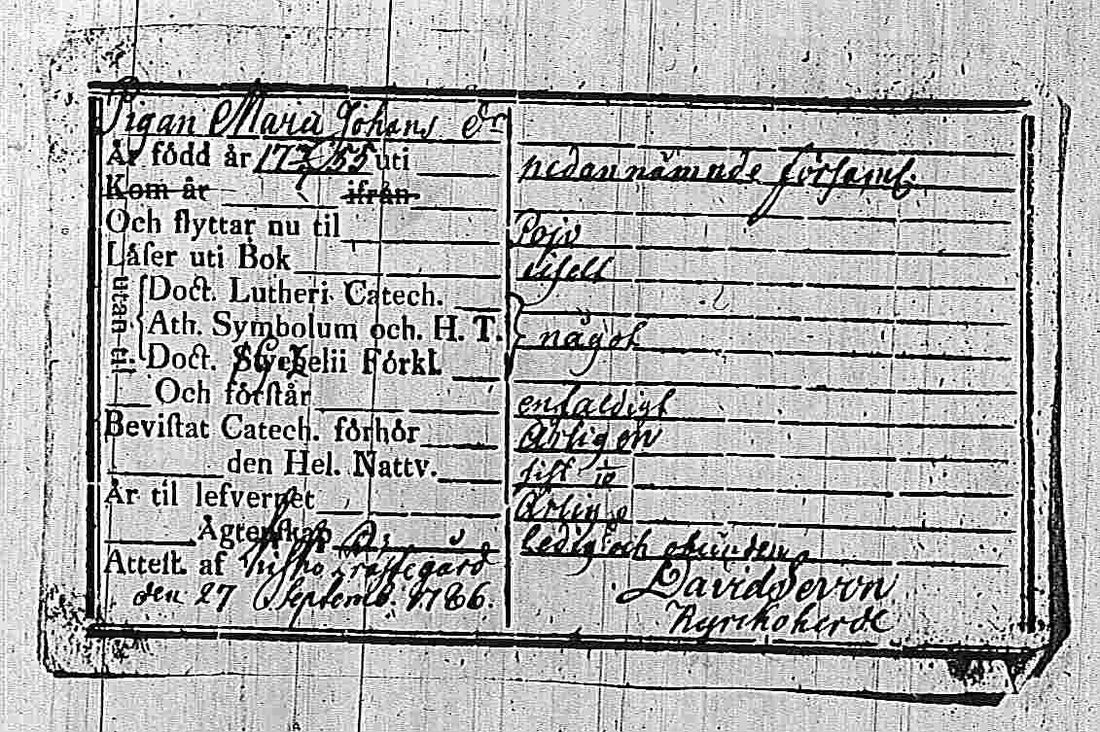 Pigan Maria Johans Dr
Är född år 1755 uti nedannämnde församl:
Kom år ifrån
Och flyttar nu til Pojo
Låser uti Bok
utan-til Doct. Lutheri Catech.
Ath. Symbolum och. H. T. något
Doct. Svebelii Förkl.
Och förstår enfaldigt
Bevistat Catech. förhör Årligen
den Hel. Nattv. sist
År til lefvernet Ärlig
Ägtenskap Ledig och obunden
Attest. af Prästegård David
den 27 Septemb: 1786. Kyrckoherde